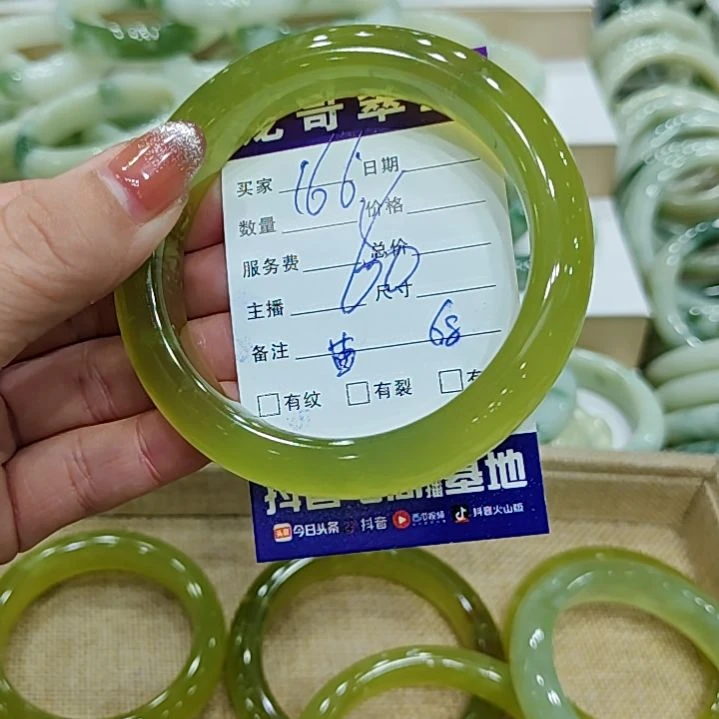 龙哥翠
买家 166 日期
数量 价格
服务费 总价
主播 尺寸
备注 黄 68
有纹 有裂 有
抖音 播基地
今日头条 抖音 西瓜视频 抖音火山版